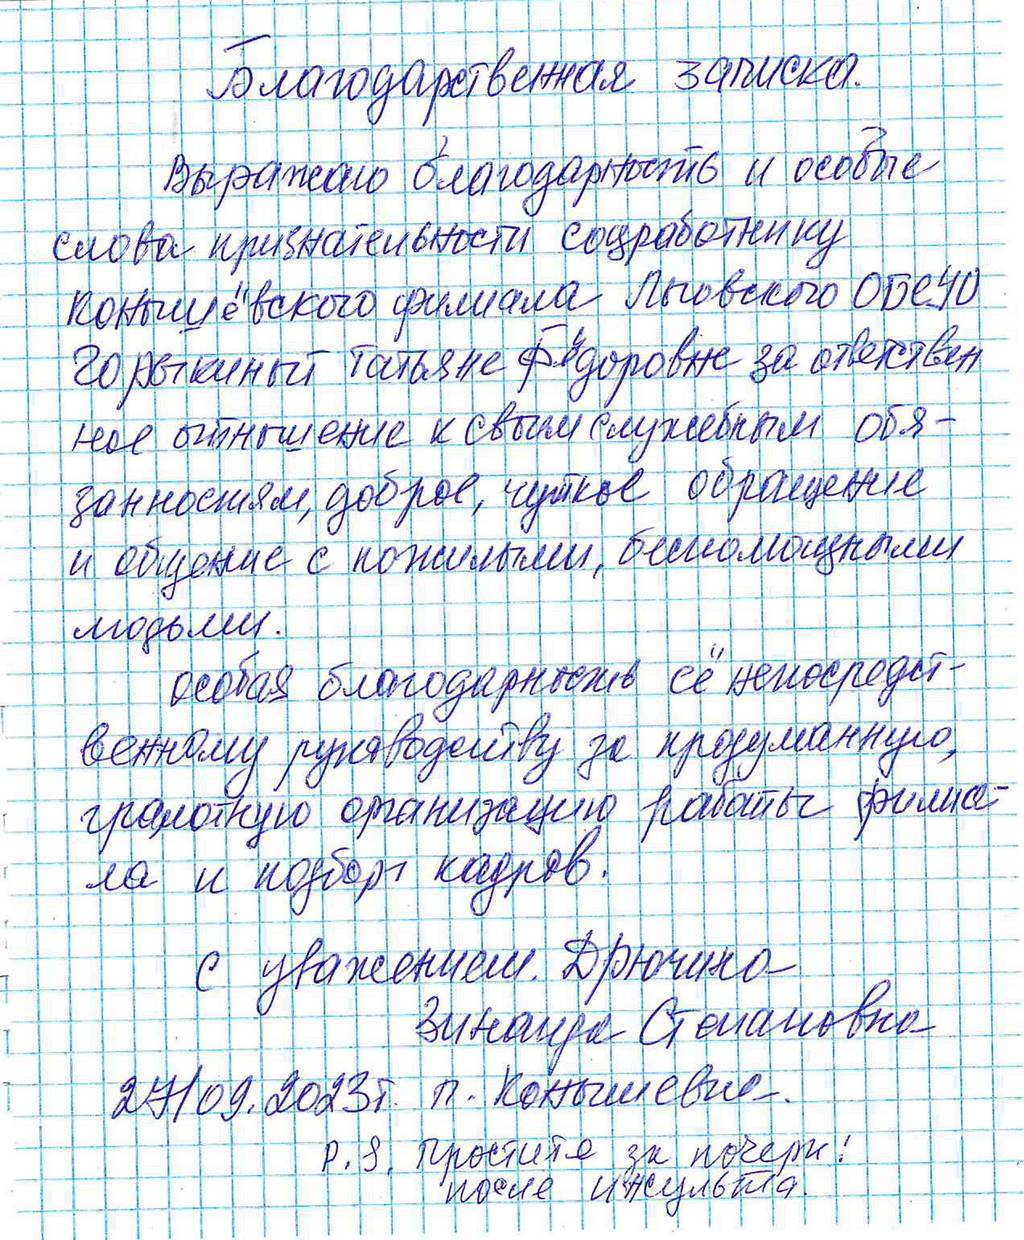 Благодарственная записка.
Выражаю благодарность и особые
слова признательности соцработнику
Конышёвского филиала Льговского ОБСУСО
Горяйкиной Татьяне Фёдоровне за ответствен
ное отношение к свым служебным обя-
занностям, доброе, чуткое обращение
и общение с пожилыми, беспомощными
людьми.
Особая благодарность её непосредст-
венному руководству за продуманную,
грамотную организацию работы филиа-
ла и подбор кадров.
С уважением. Дрючина
Зинаида Степановна
27/09.2023г. п. Конышевка.
P.S. Простите за почерк!
после инсульта.